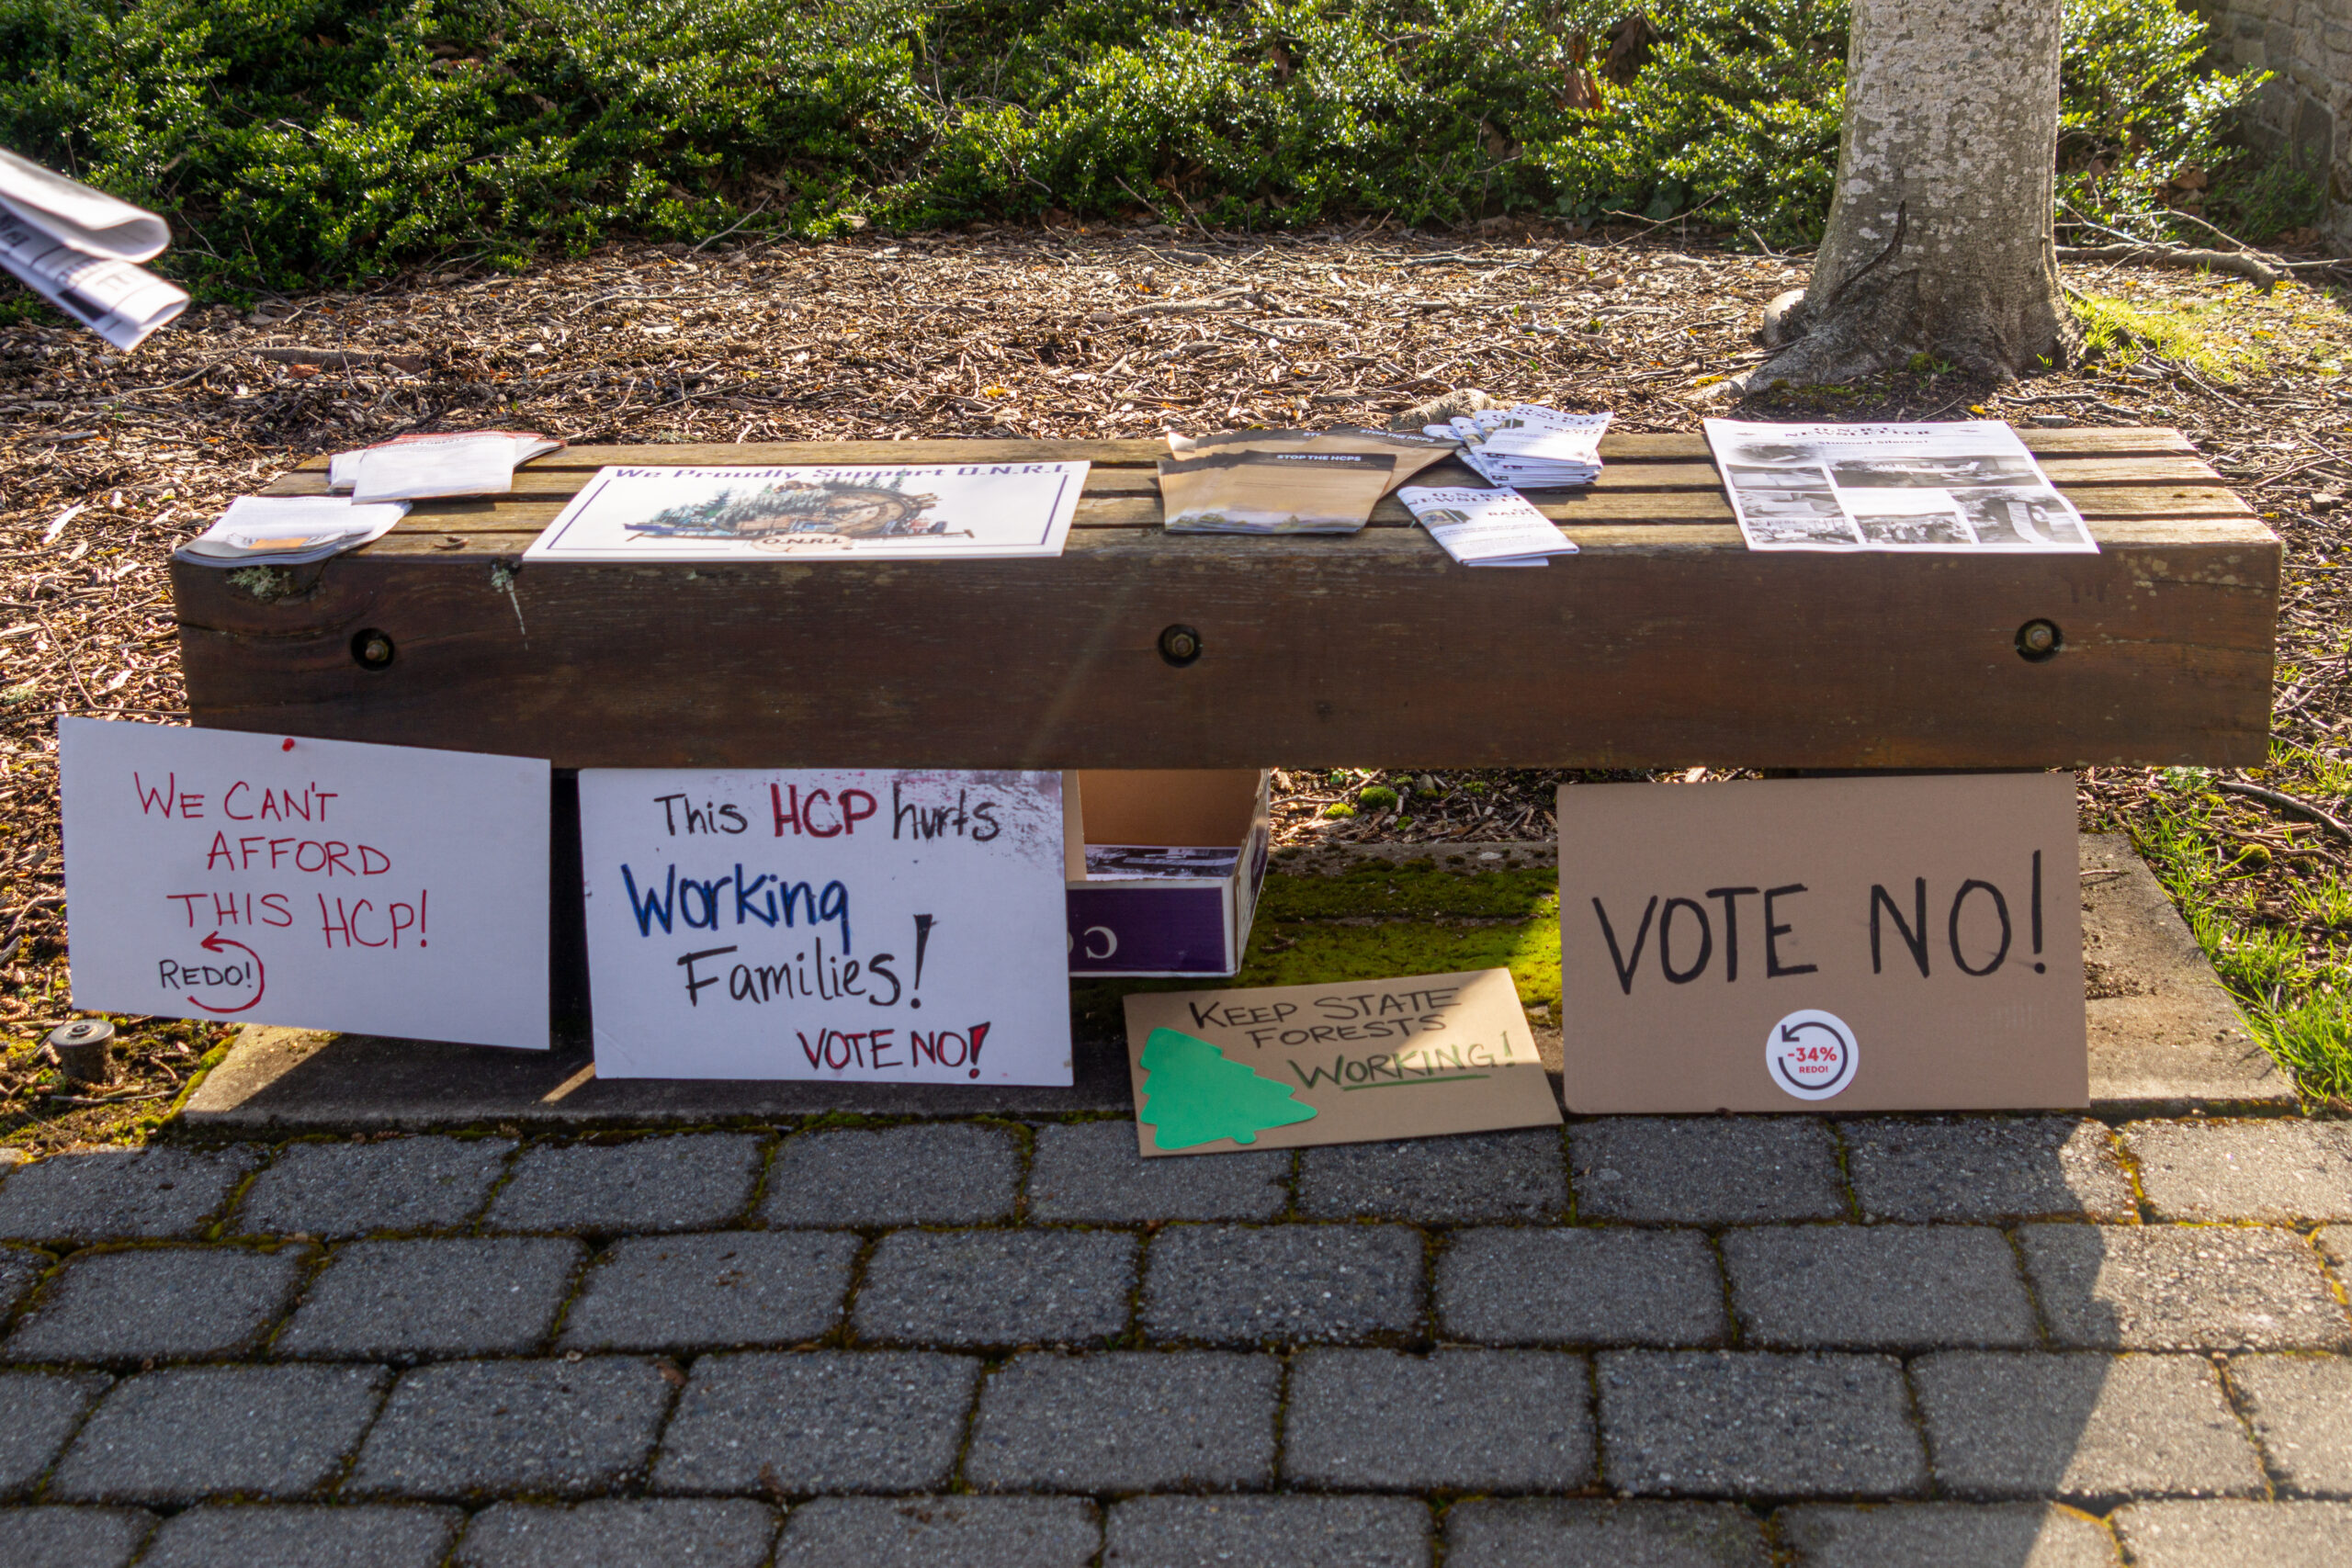 We Proudly Support O.N.R.I.
O.N.R.I.
STOP THE HCPS
STOP THE HCPS
O.N.R.I.
NEWSLETTER
O.N.R.I.
NEWSLETTER
Stumped Silence!
WE CAN'T
AFFORD
THIS HCP!
REDO!
This HCP hurts
Working
Families!
VOTE NO!
KEEP STATE
FORESTS
WORKING!
VOTE NO!
-34%
REDO!